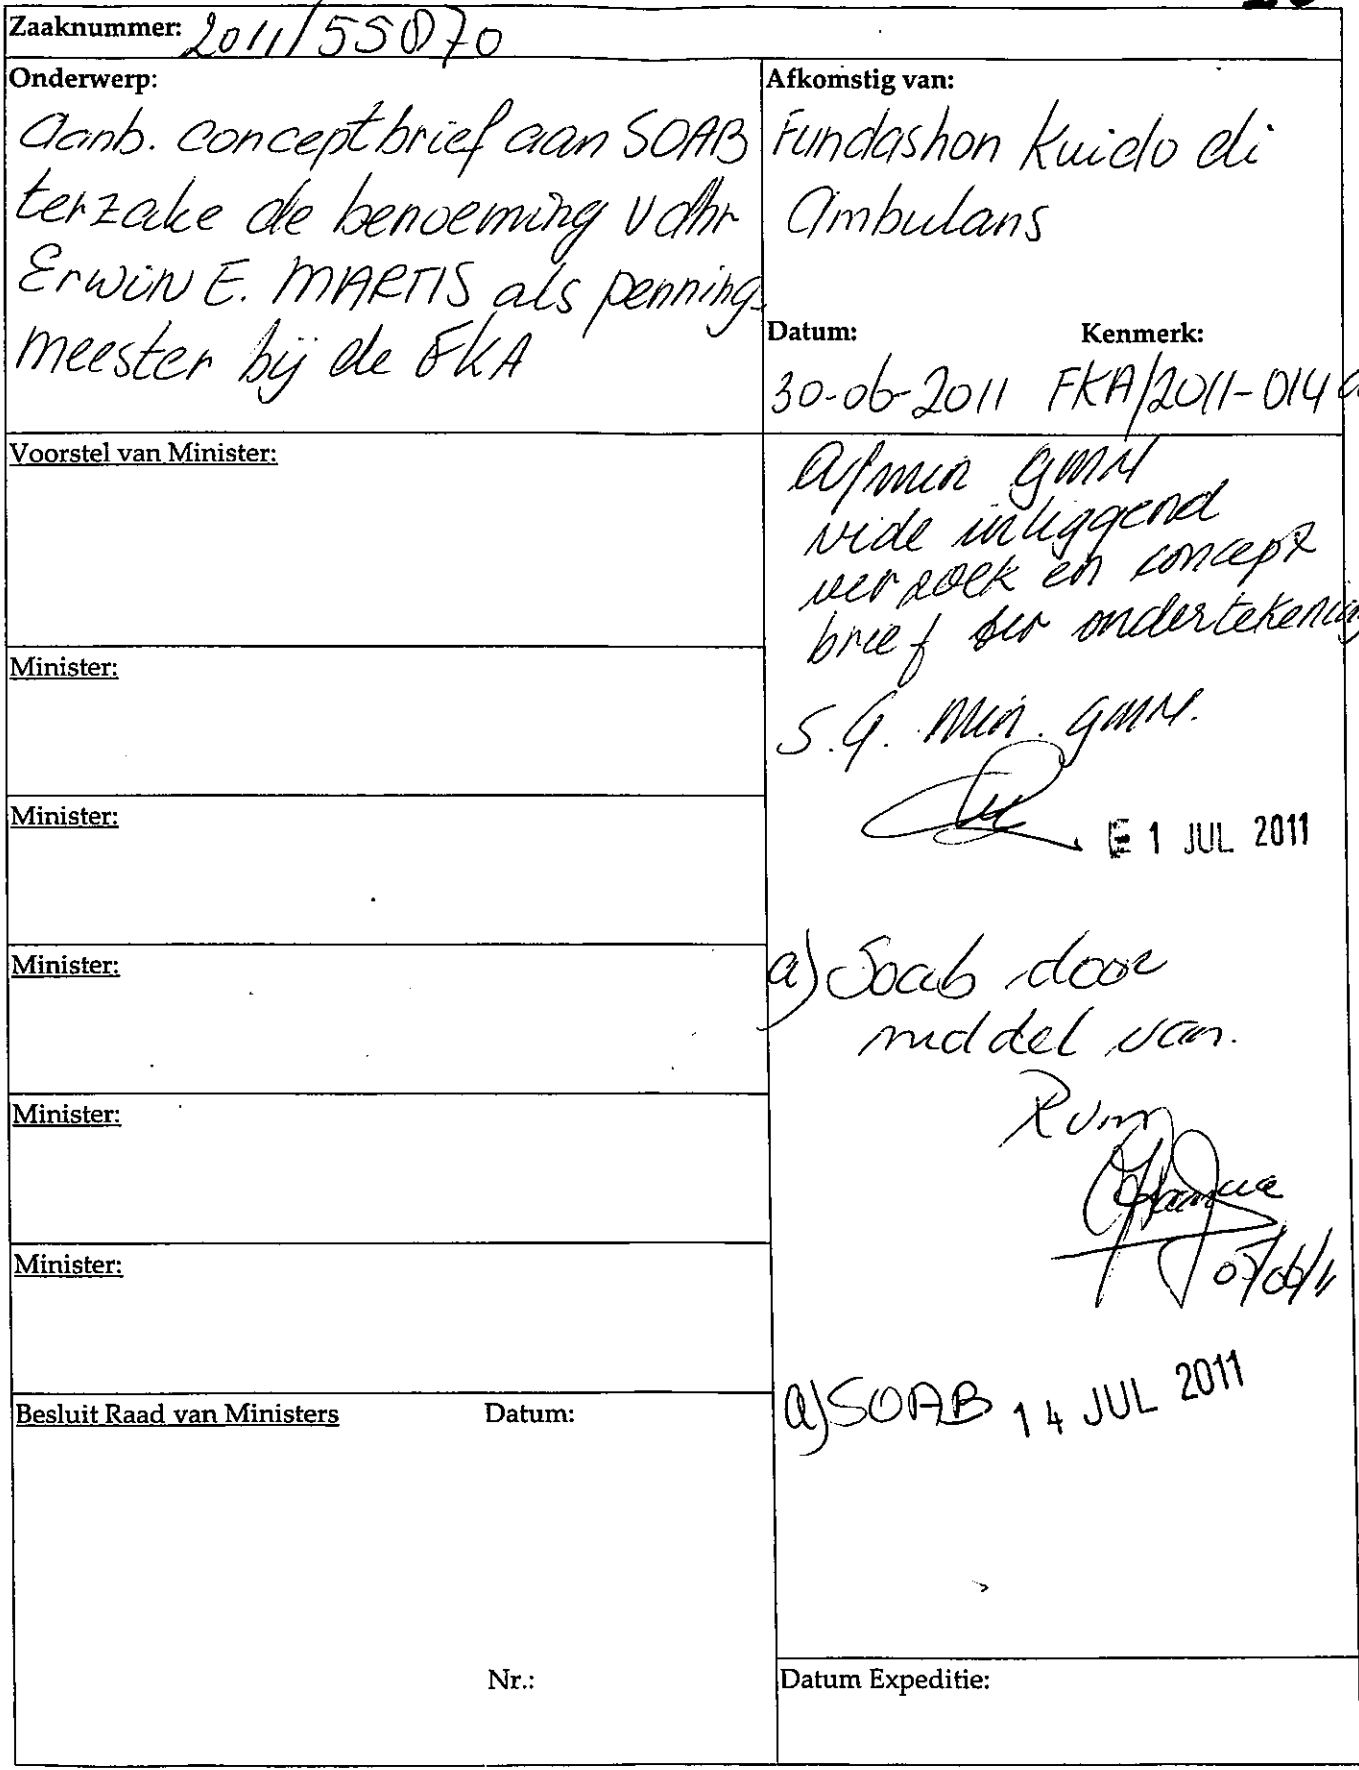 Zaaknummer: 2011/55070
Onderwerp:
Aanb. conceptbrief aan SOAB
terzake de benoeming vdhr
Erwin E. MARTIS als penning-
meester bij de FKA
Afkomstig van:
Fundashon Kuido di
Ambulans
Datum: Kenmerk:
30-06-2011 FKA/2011-014
Voorstel van Minister:
Minister:
Minister:
Minister:
Minister:
Minister:
Besluit Raad van Ministers Datum:
Nr.:
a/min GMN
vide inliggend
verzoek en concept
brief ter ondertekening
S.G. Min. GMN.
1 JUL 2011
a) Soab door
middel van.
07/06/11
a) SOAB 14 JUL 2011
Datum Expeditie: